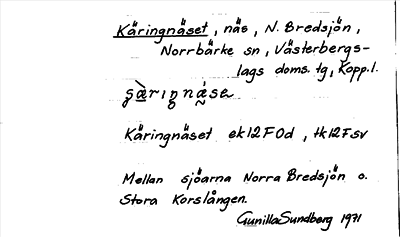 Käringnäset, näs, N. Bredsjön,
Norrbärke sn, Västerbergs-
lags doms. tg, Kopp.l.
gæ̀rıŋnǽsa
Käringnäset ek12F0d, tk12Fsv
Mellan sjöarna Norra Bredsjön o.
Stora Korslången.
Gunilla Sundberg 1971